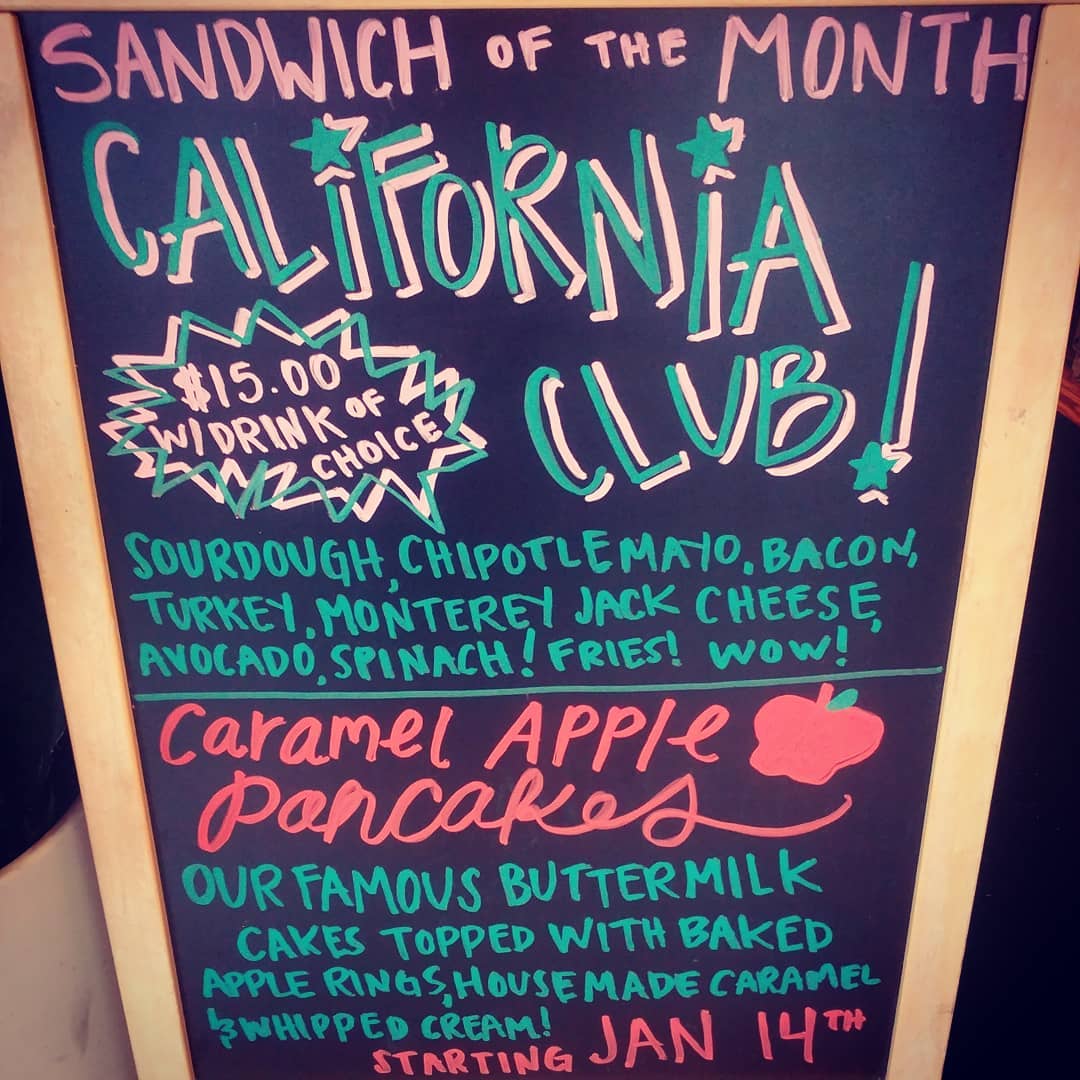 SANDWICH OF THE MONTH
CALIFORNIA
CLUB!
$15.00
W/ DRINK OF
CHOICE
SOURDOUGH, CHIPOTLE MAYO, BACON,
TURKEY, MONTEREY JACK CHEESE,
AVOCADO, SPINACH! FRIES! WOW!
Caramel Apple
Pancakes
OUR FAMOUS BUTTERMILK
CAKES TOPPED WITH BAKED
APPLE RINGS, HOUSEMADE CARAMEL
& WHIPPED CREAM!
STARTING JAN 14TH